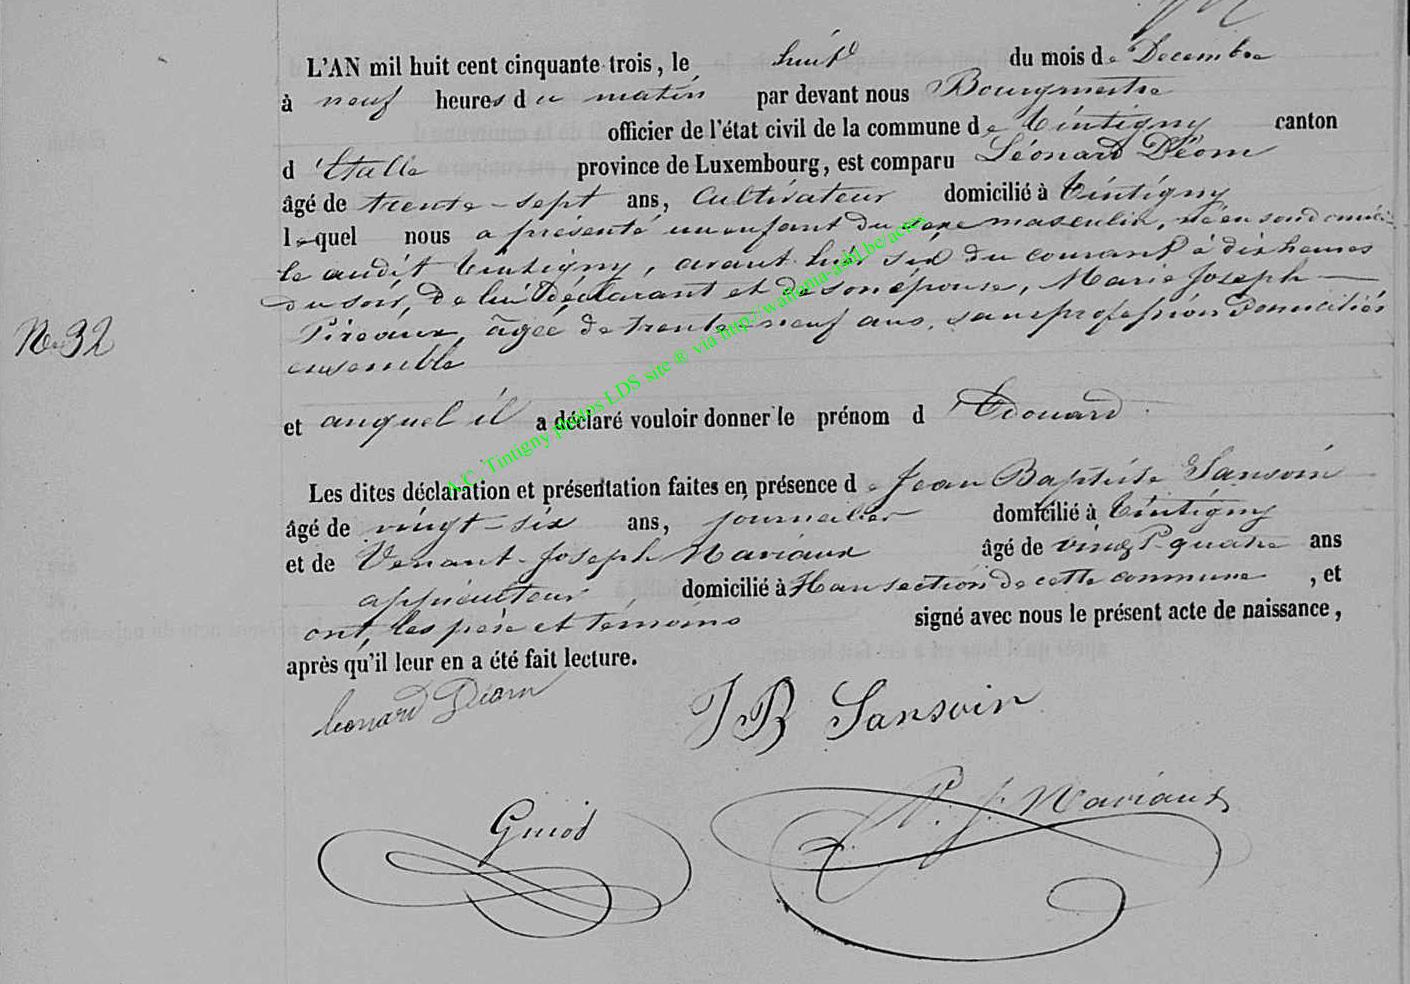 L'AN mil huit cent cinquante trois, le huit du mois de Decembre
à neuf heures du matin par devant nous Bourgmestre
officier de l'état civil de la commune de Tintigny canton
d'Etalle province de Luxembourg, est comparu Léonard Déom
âgé de trente-sept ans, Cultivateur domicilié à Tintigny
lequel nous a présenté un enfant du sexe masculin, né en son domici-
le audit Tintigny, avant hier six du courant à dix heures
du soir, de lui Déclarant et de son épouse, Marie Joseph
Pireaux, âgée de trente neuf ans, sans profession domiciliés
N° 32
ensemble
et auquel il a déclaré vouloir donner le prénom d'Edouard
Les dites déclaration et présentation faites en présence de Jean Baptiste Sansoin
âgé de vingt-six ans, journalier domicilié à Tintigny
et de Venant-Joseph Naviaux âgé de vingt-quatre ans
domicilié à Han section de cette commune, et
ont, les père et témoins signé avec nous le présent acte de naissance,
après qu'il leur en a été fait lecture.
Leonard Déom
JB Sansoin
V. J. Naviaux
Guiot
A.C. Tintigny photos LDS site ® via http://wallonia-asbl.be/actes